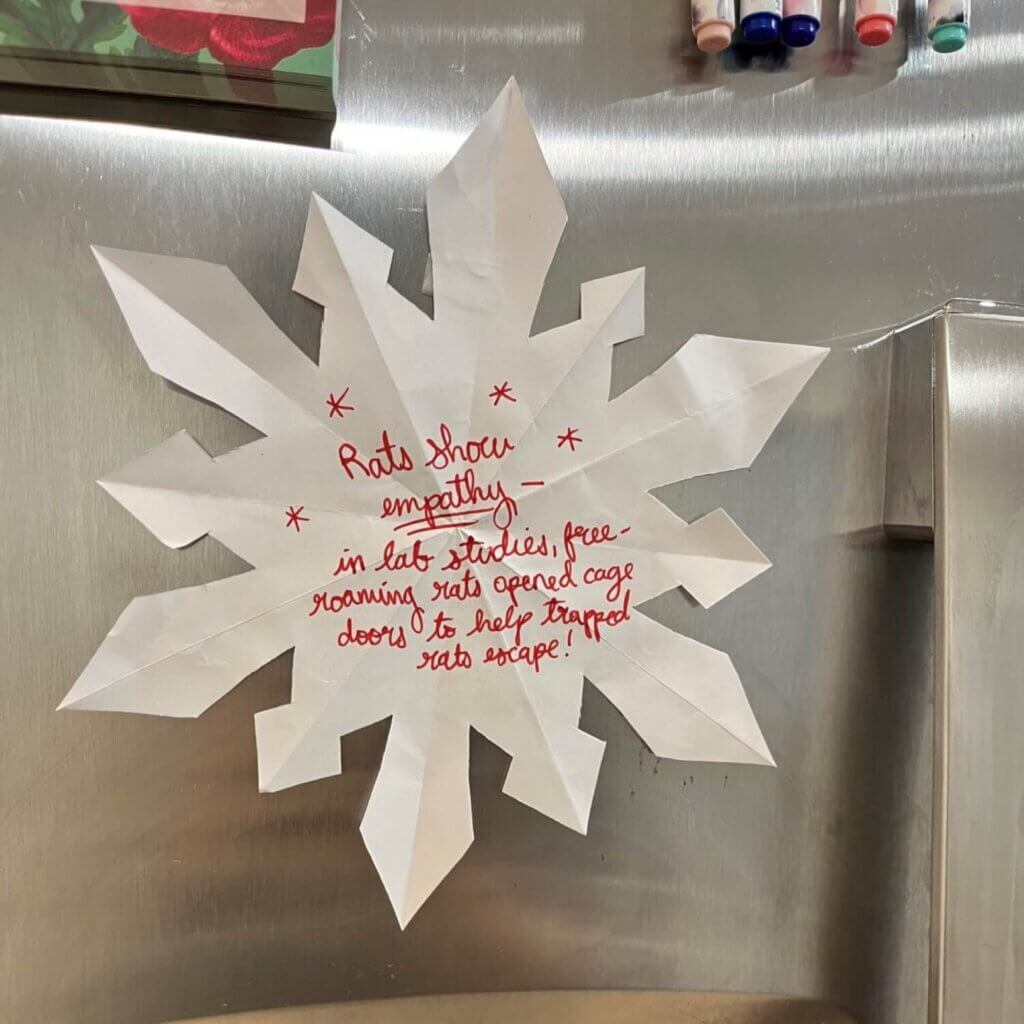 Rats show
empathy –
in lab studies, free-
roaming rats opened cage
doors to help trapped
rats escape!